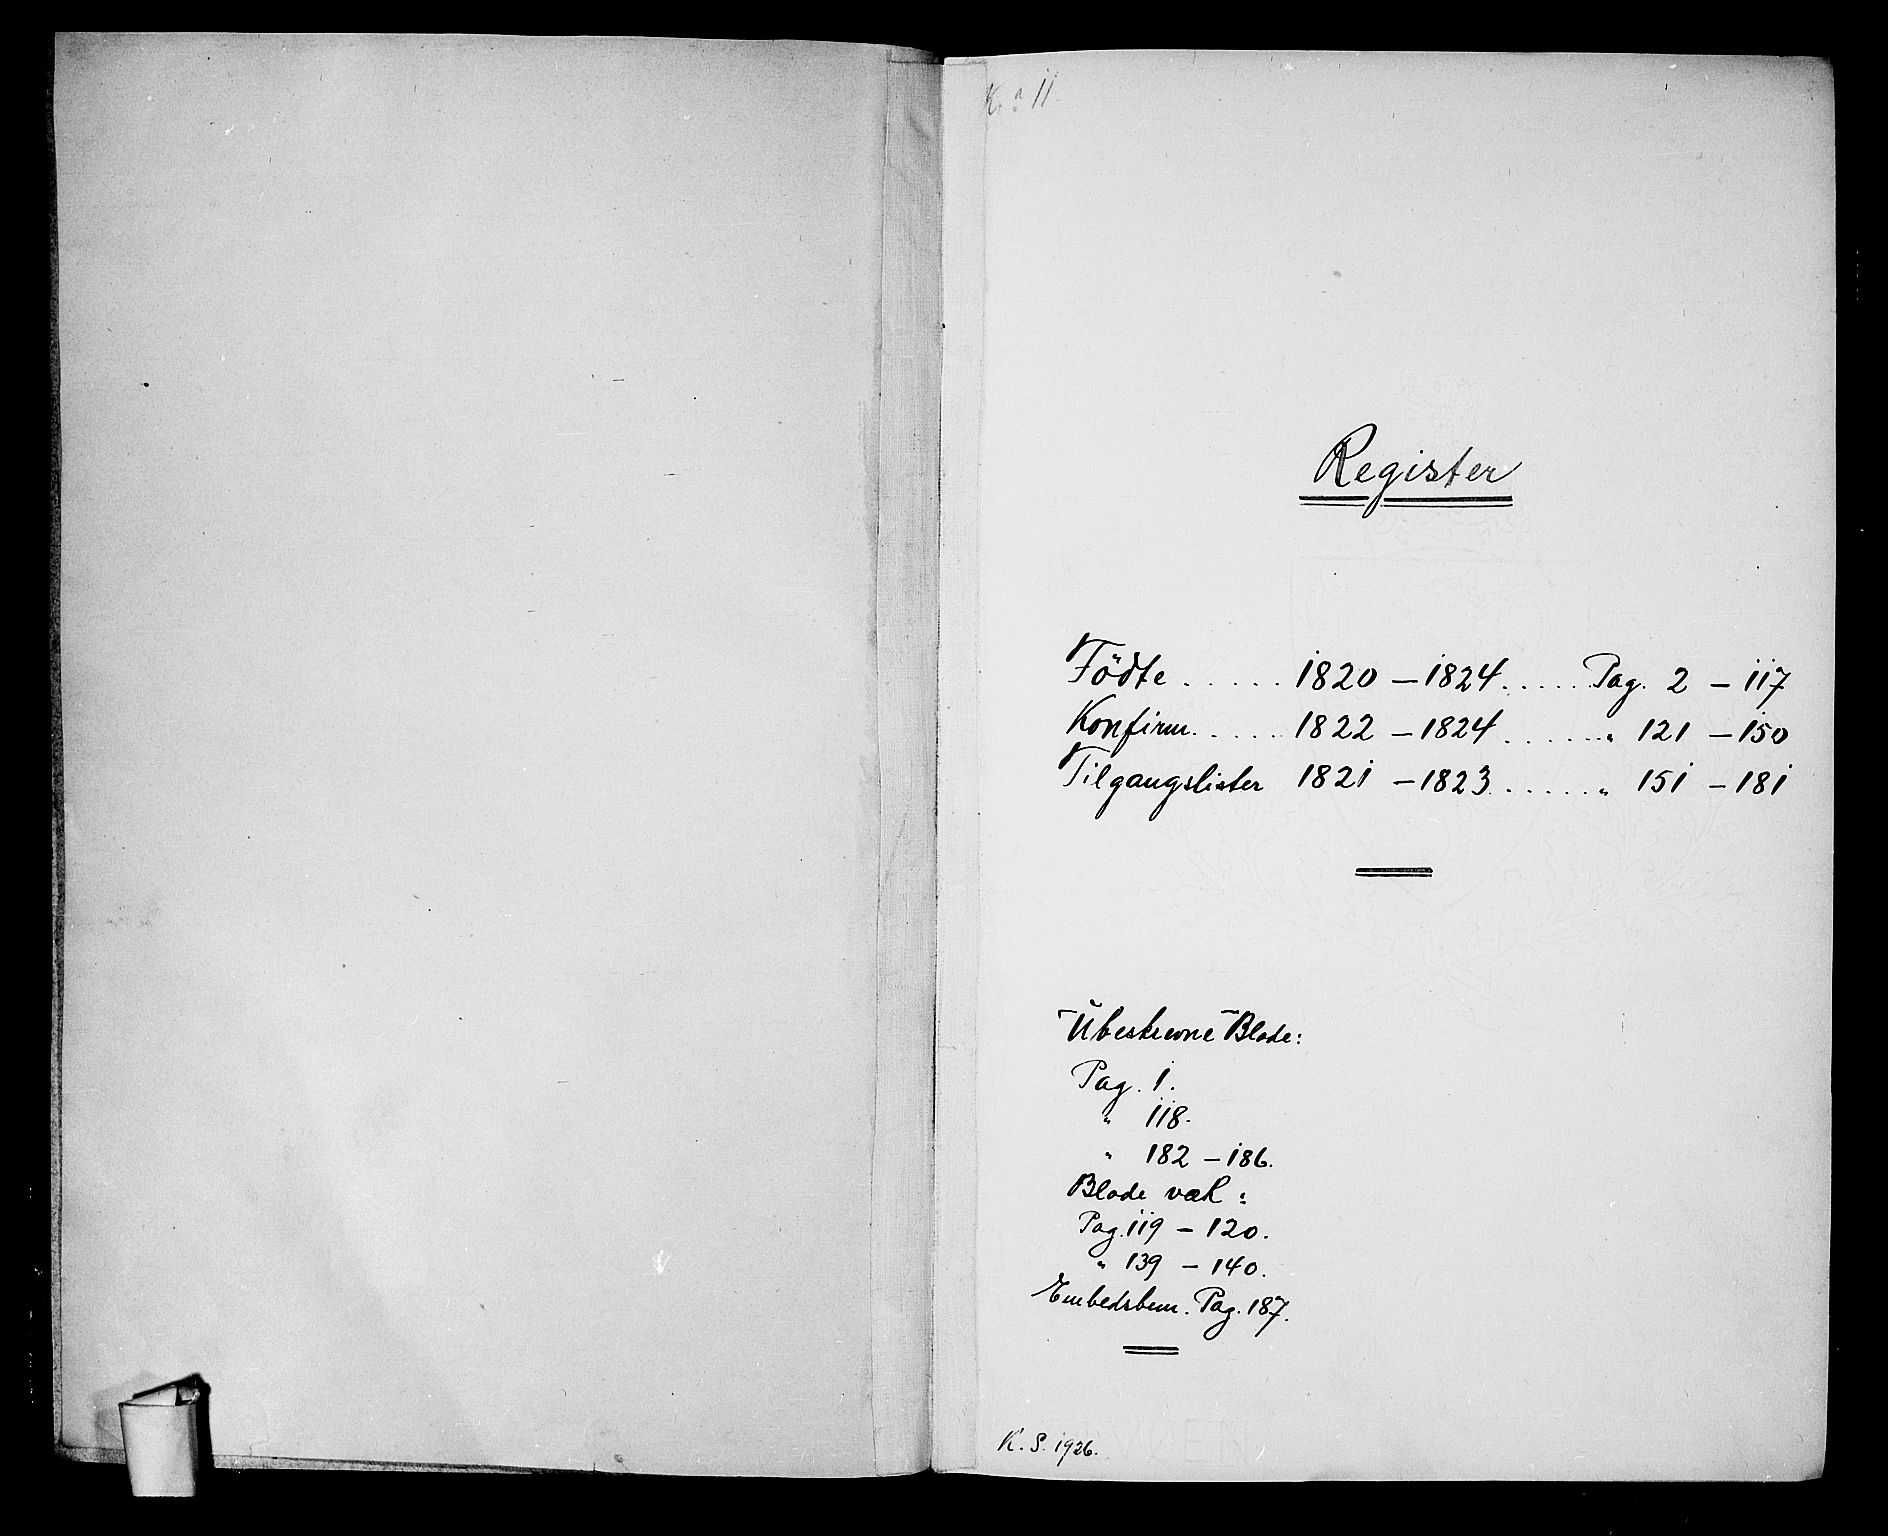 11
Register
Födte . . . . . 1820 – 1824 . . . . . Pag. 2 – 117
Konfirm. . . . . 1822 – 1824 . . . . . „ 121 – 150
Tilgangslister 1821 – 1823 . . . . . „ 151 – 181
Ubeskrevne Blade:
Pag. 1.
„ 118.
„ 182 – 186.
Blade væk :
Pag. 119 – 120.
„ 139 – 140.
Embedsbem. Pag. 187.
K. S. 1926.